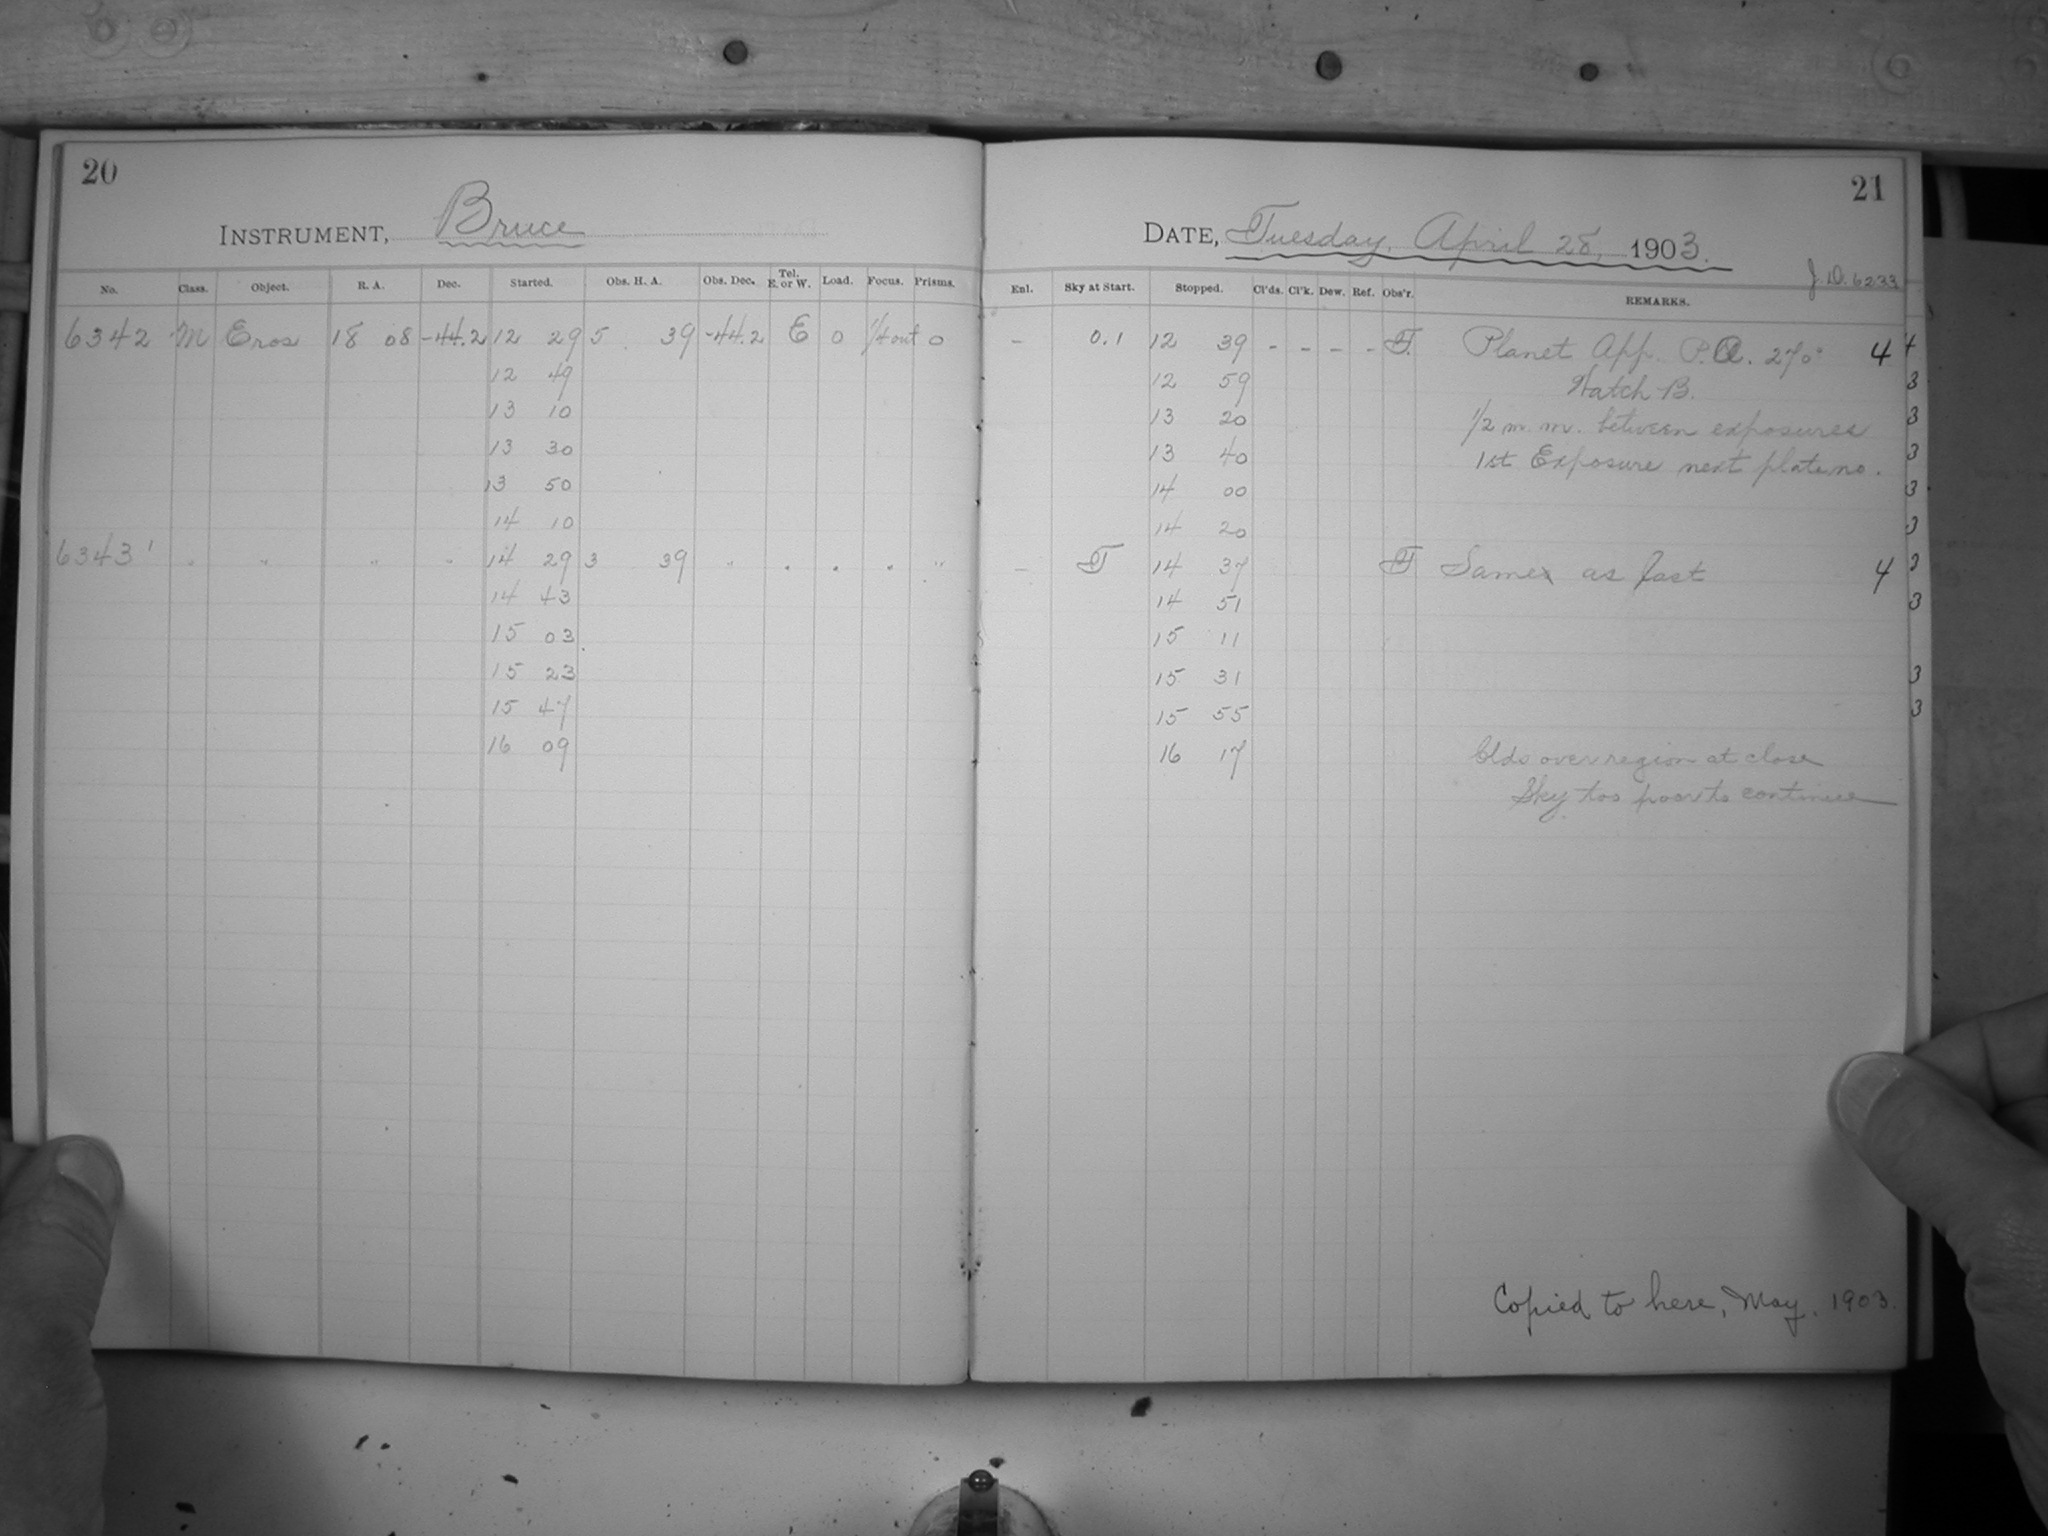 20
INSTRUMENT, Bruce
No. Class. Object. R. A. Dec. Started. Obs. H. A. Obs. Dec. Tel. E. or W. Load. Focus. Prisms.
6342 M Eros 18 08 -44.2 12 29 5 39 -44.2 E 0 1/4 out 0
12 49
13 10
13 30
13 50
14 10
6343 " " " " 14 29 3 39 " . . . "
14 43
15 03
15 23
15 47
16 09
21
DATE, Tuesday, April 28, 1903.
J.D. 6233
Enl. Sky at Start. Stopped. Cl'ds. Cl'k. Dew. Ref. Obs'r. REMARKS.
- 0.1 12 39 - - - - F. Planet App. P.A. 270° 4
12 59 Watch B.
13 20 1/2 m.m. between exposures
13 40 1st Exposure next plate no.
14 00
14 20
- F 14 37 F Same as last 4
14 51
15 11
15 31
15 55
16 17 Clds over region at close
Sky too poor to continue
Copied to here, May, 1903.
4
3
3
3
3
3
3
3
3
3